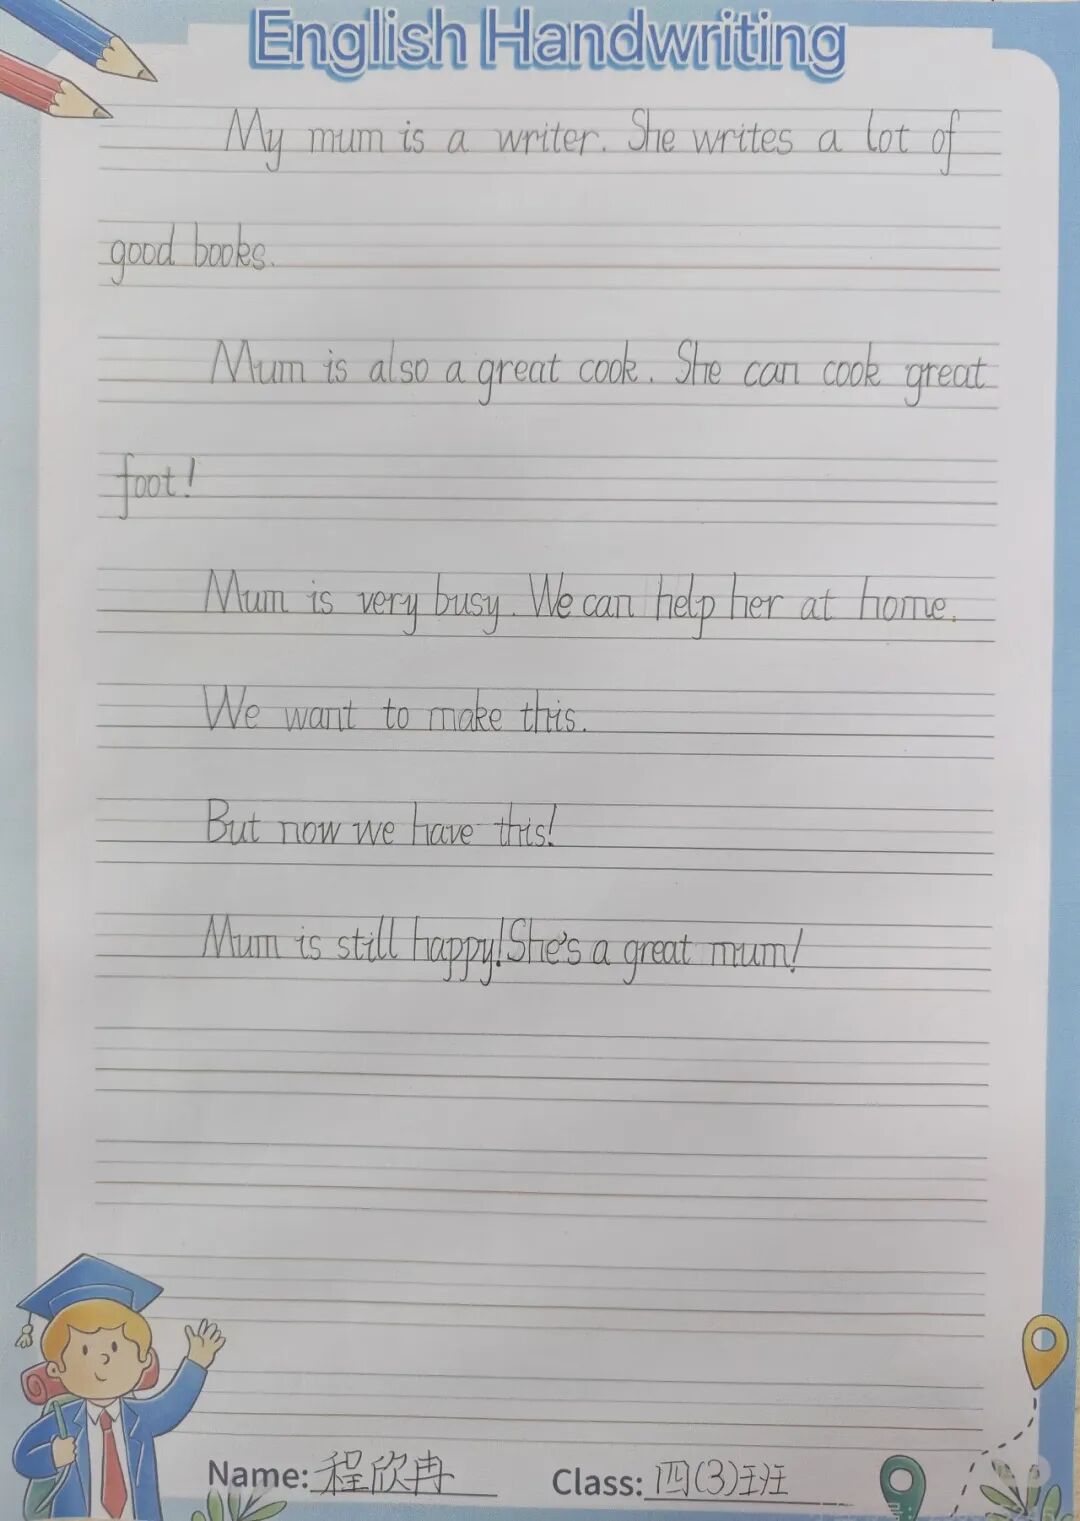 English Handwriting
My mum is a writer. She writes a lot of
good books.
Mum is also a great cook. She can cook great
foot!
Mum is very busy. We can help her at home.
We want to make this.
But now we have this!
Mum is still happy! She's a great mum!
Name: 程欣冉 Class: 四(3)班